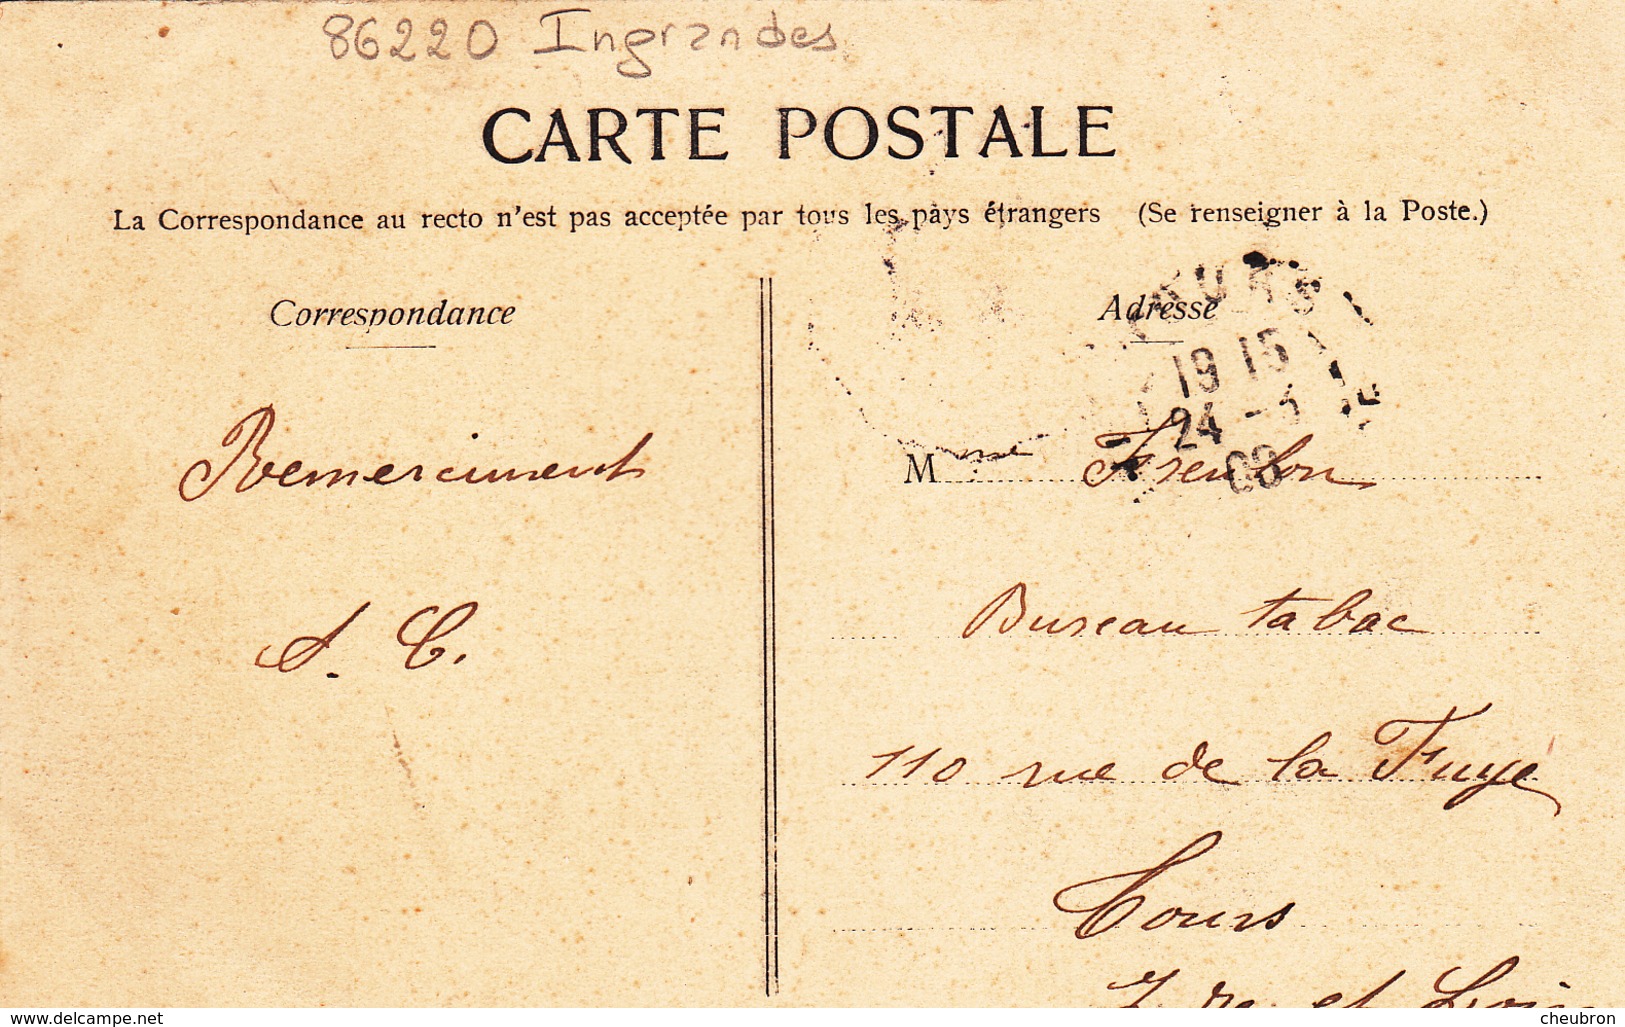 86220 Ingrandes
CARTE POSTALE
La Correspondance au recto n'est pas acceptée par tous les pays étrangers (Se renseigner à la Poste.)
Correspondance
Adresse
TOURS
19 15
24 - 3
Remerciment
Mme
A. C.
Bureau tabac
110 rue de la Fuye
Tours
I. re et Loire
www.delcampe.net
cheubron